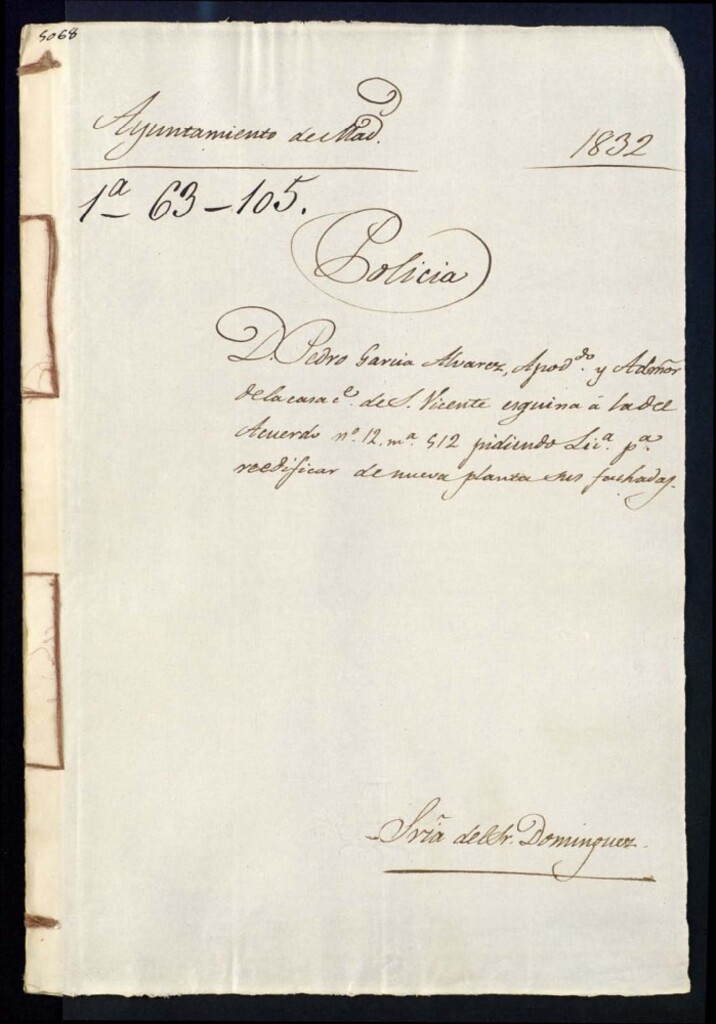 5068
Ayuntamiento de Mad.
1832
1ª 63-105.
Policia
D. Pedro Garcia Alvarez, Apod.do y Admõr
de la casa c.e de S. Vicente esquina á la del
Acuerdo n.º 12, m.ª 512 pidiendo Lic.ª p.ª
reedificar de nueva planta sus fachadas.
Sría del Sr. Dominguez.